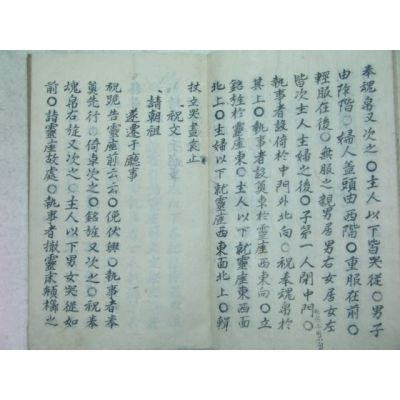 奉魂帛又次之○主人以下皆哭從○男子
由阼階○婦人盖頭由西階○重服在前○
輕服在後○無服之親男居男右女居女左
皆次主人主婦之後○子弟一人開中門○
執事者設倚於中門外北向○祝奉魂帛於
其上○執事者設奠東於靈座西東向○立
銘旌於靈座東○主人以下就靈座東西面
北上○主婦以下就靈座西東面北上○輯
杖立哭盡哀止
祝文
請朝祖
遂遷于廳事
祝跪告靈座前云云○俛伏興○執事者奉
奠先行○倚卓次之○銘旌又次之○祝奉
魂帛右旋又次之○主人以下男女哭從如
前○詣靈座故處○執事者撤靈床頮櫛之